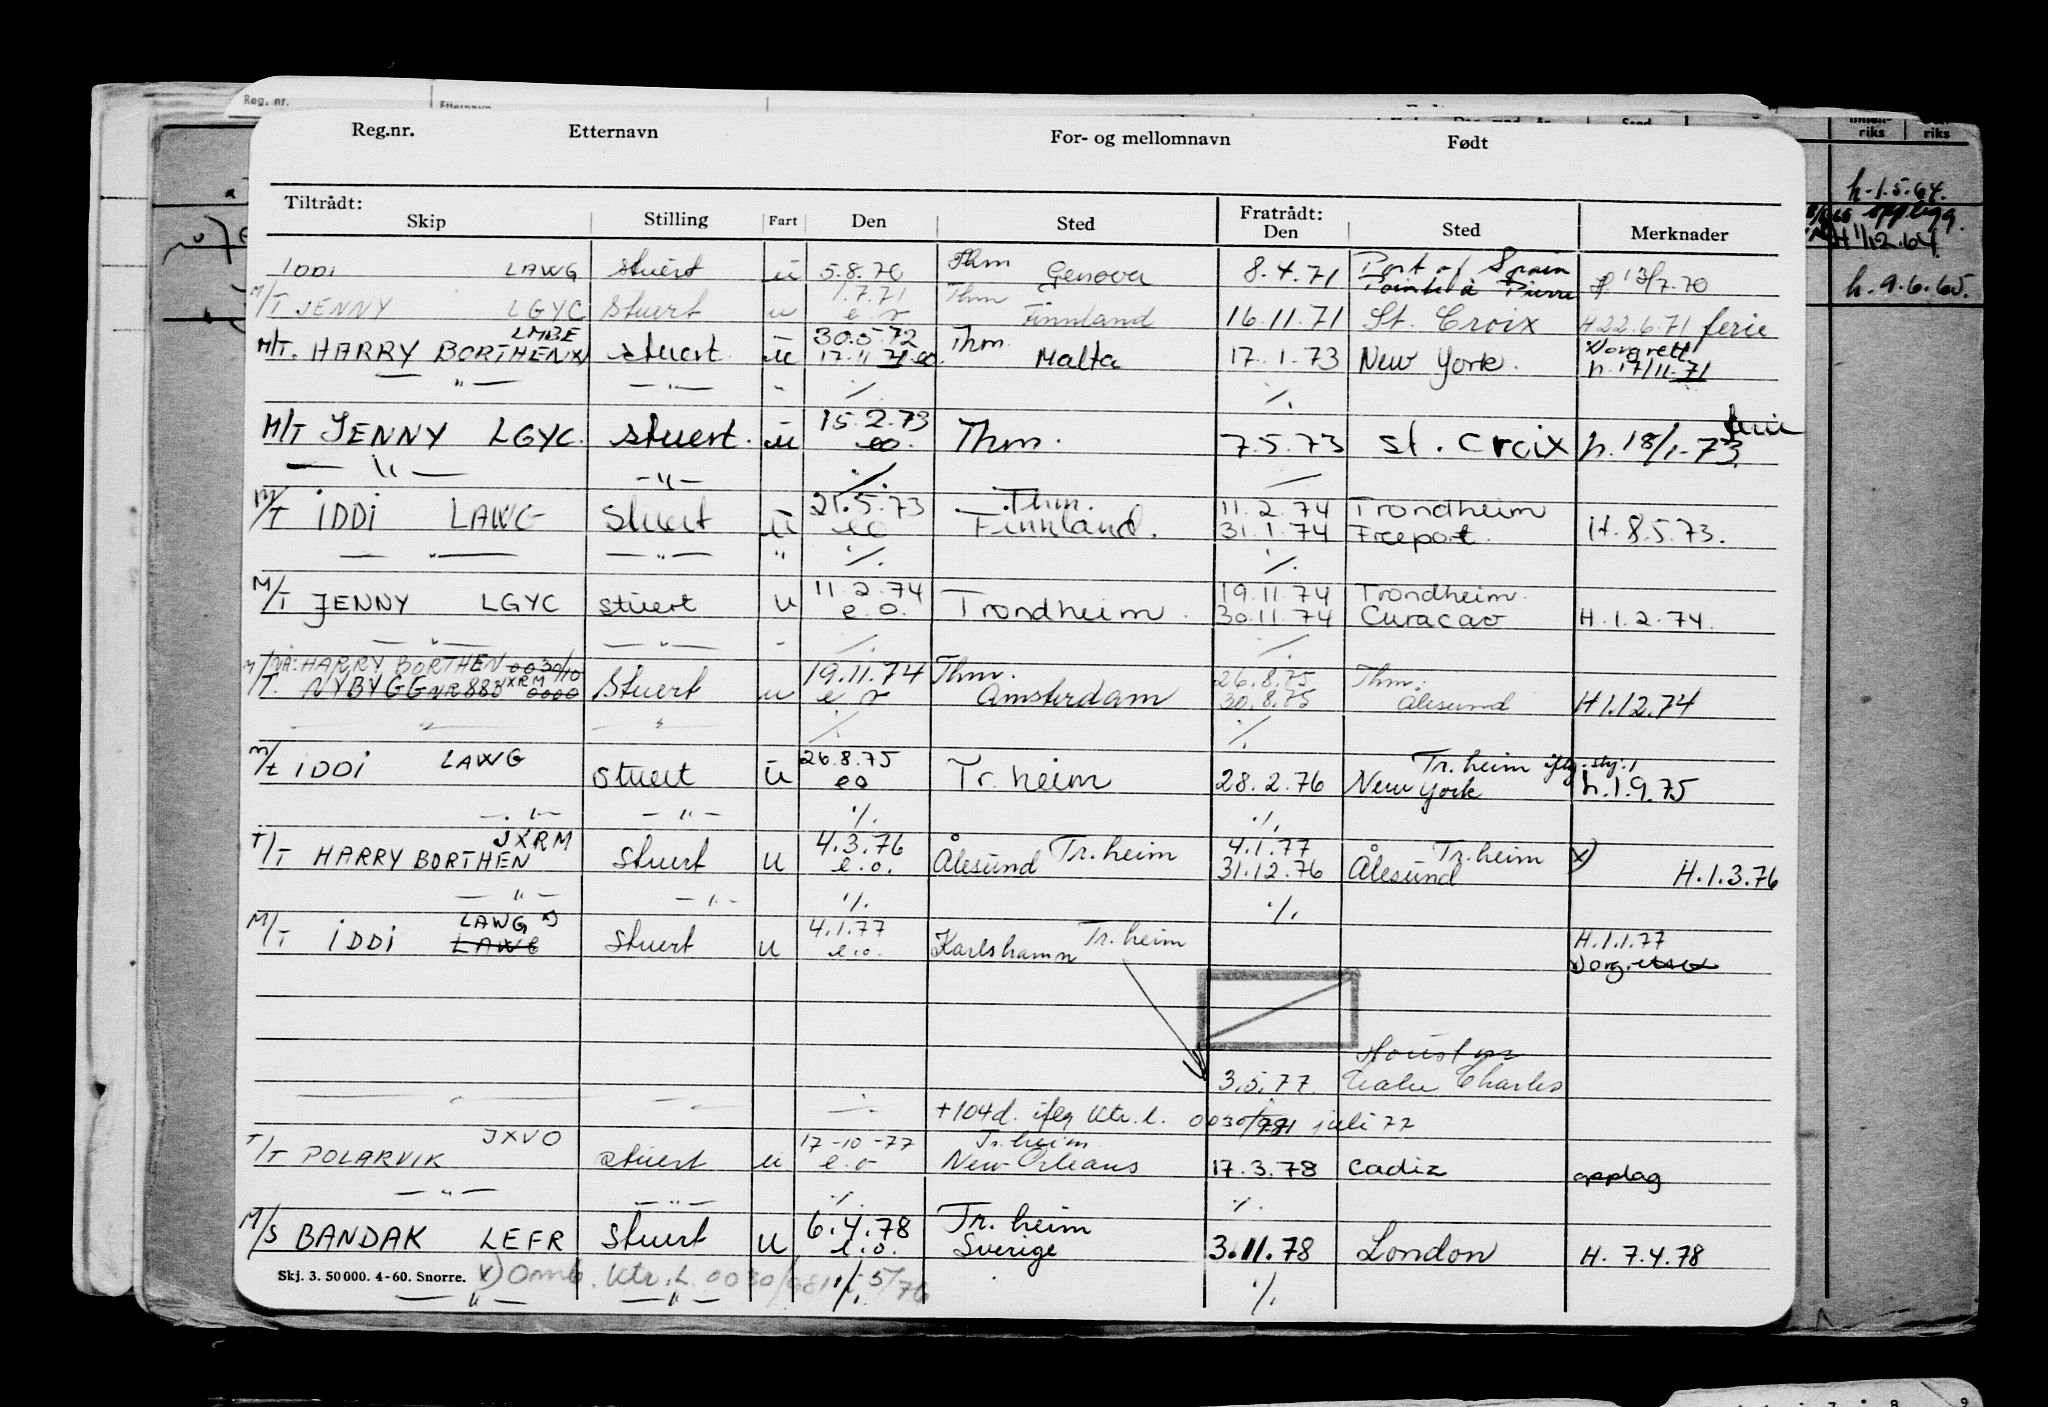 Reg. nr.
Reg.nr. Etternavn For- og mellomnavn Født
Tiltrådt: Fratrådt:
Skip Stilling Fart Den Sted Den Sted Merknader
riks riks
h. 1.5.64.
H 1/12.64
h. 9.6.65.
IDDI LAWG stuert u 5.8.70 Thm Genova 8.4.71 Port of Spain 13/7.70
Pointe à Pierre
M/T JENNY LGYC stuert u 1.7.71 Thm
e o Finnland 16.11.71 St. Croix H 22.6.71 ferie
LMBE 30.5.72 Thm.
M/T. HARRY BORTHEN x) stuert. u 17.11 71 eo. Malta 17.1.73 New York. h. 17/11.71
— " — — " — " ./. ./.
M/T JENNY LGYC. stuert. u 15.2.73 Thm. 7.5.73 St. Croix h. 18/1-73 ferie
eo.
— " — — " — ./. —
M/T IDDI LAWG stuert u 21.5.73 Thm. 11.2.74 Trondheim
eo Finnland. 31.1.74 Freeport. H. 8.5.73.
— " — — " — " ./. ./.
M/T JENNY LGYC stuert u 11.2.74 19.11.74 Trondheim.
e.o. Trondheim. 30.11.74 Curacao H. 1.2.74.
— " — — " — " ./. ./.
NÅ: HARRY BORTHEN 0030/10
M/T. NYBYGG NR 883 JXRM 0000 stuert u 19.11.74 Thm. 26.8.75 Thm.
e o Amsterdam 30.8.75 Ålesund H 1.12.74
— " — " ./. ./.
M/t IDDI LAWG stuert u 26.8.75 Tr.heim
eo Tr.heim 28.2.76 New York h. 1.9.75
— " — — " — ./. ./.
JXRM 4.3.76 Tr.heim 4.1.77 Tr.heim x)
T/T HARRY BORTHEN stuert u e.o. Ålesund 31.12.76 Ålesund H. 1.3.76
— " — — " — ./. ./.
M/T IDDI LAWG x) LAWG stuert u 4.1.77 Tr.heim H. 1.1.77
e.o. Karlshamn
Houston
3.5.77 Lake Charles
— " — — " — ./.
+104d. iflg ktr.l. 0030/981 juli 77
T/T POLARVIK JXVO stuert u 17-10-77 Tr.heim
e.o New Orleans 17.3.78 Cadiz opplag
— " — — " — ./. ./.
M/S BANDAK LEFR stuert u 6.4.78 Tr.heim
e.o. Sverige 3.11.78 London H. 7.4.78
Skj. 3. 50000. 4-60. Snorre. x) Omb. ktr.l. 0030/981 5/76
— " — — " — ./. ./.